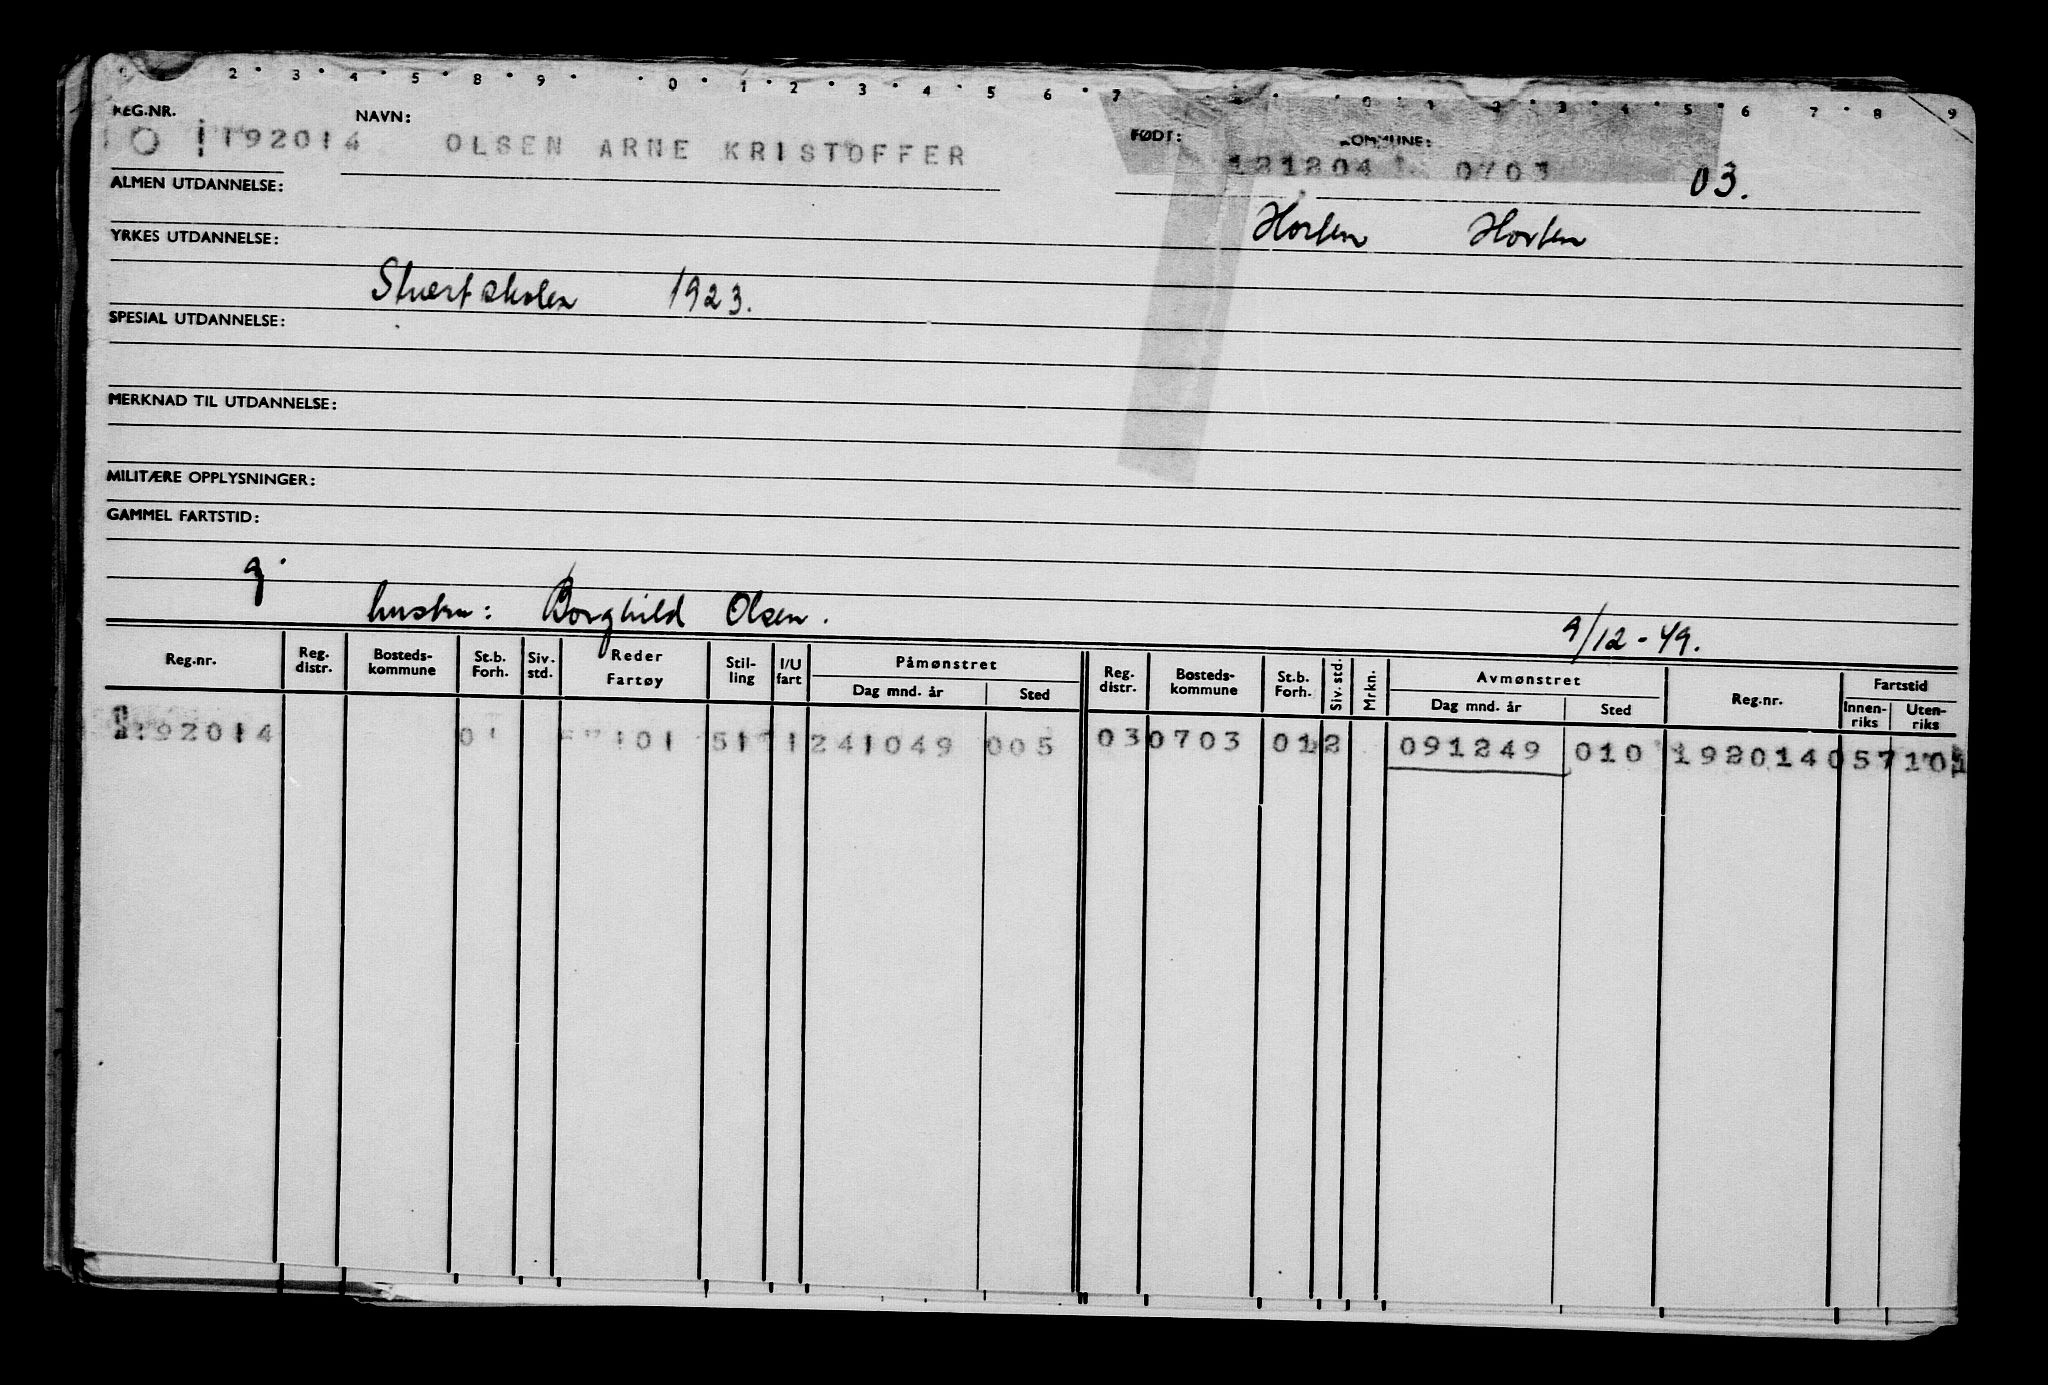 2 3 4 5 8 9 0 1 2 3 4 5 6 7 0 1 2 3 4 5 6 7 8 9
REG.NR. NAVN: FØDT: KOMMUNE:
192014 OLSEN ARNE KRISTOFFER 121204 0703 03.
ALMEN UTDANNELSE:
Horten Horten
YRKES UTDANNELSE:
Stuertskolen 1923.
SPESIAL UTDANNELSE:
MERKNAD TIL UTDANNELSE:
MILITÆRE OPPLYSNINGER:
GAMMEL FARTSTID:
g.
hustru: Borghild Olsen. 9/12-49.
Reg.nr. Reg. distr. Bosteds-kommune St.b. Forh. Siv. std. Reder Fartøy Stil-ling I/U fart Påmønstret Dag mnd. år Sted Reg. distr. Bosteds-kommune St.b. Forh. Siv. std. Mrkn. Avmønstret Dag mnd. år Sted Reg.nr. Fartstid Innen-riks Uten-riks
192014 0 101 51 1 241049 005 03 0703 01 2 091249 010 192014 057 10